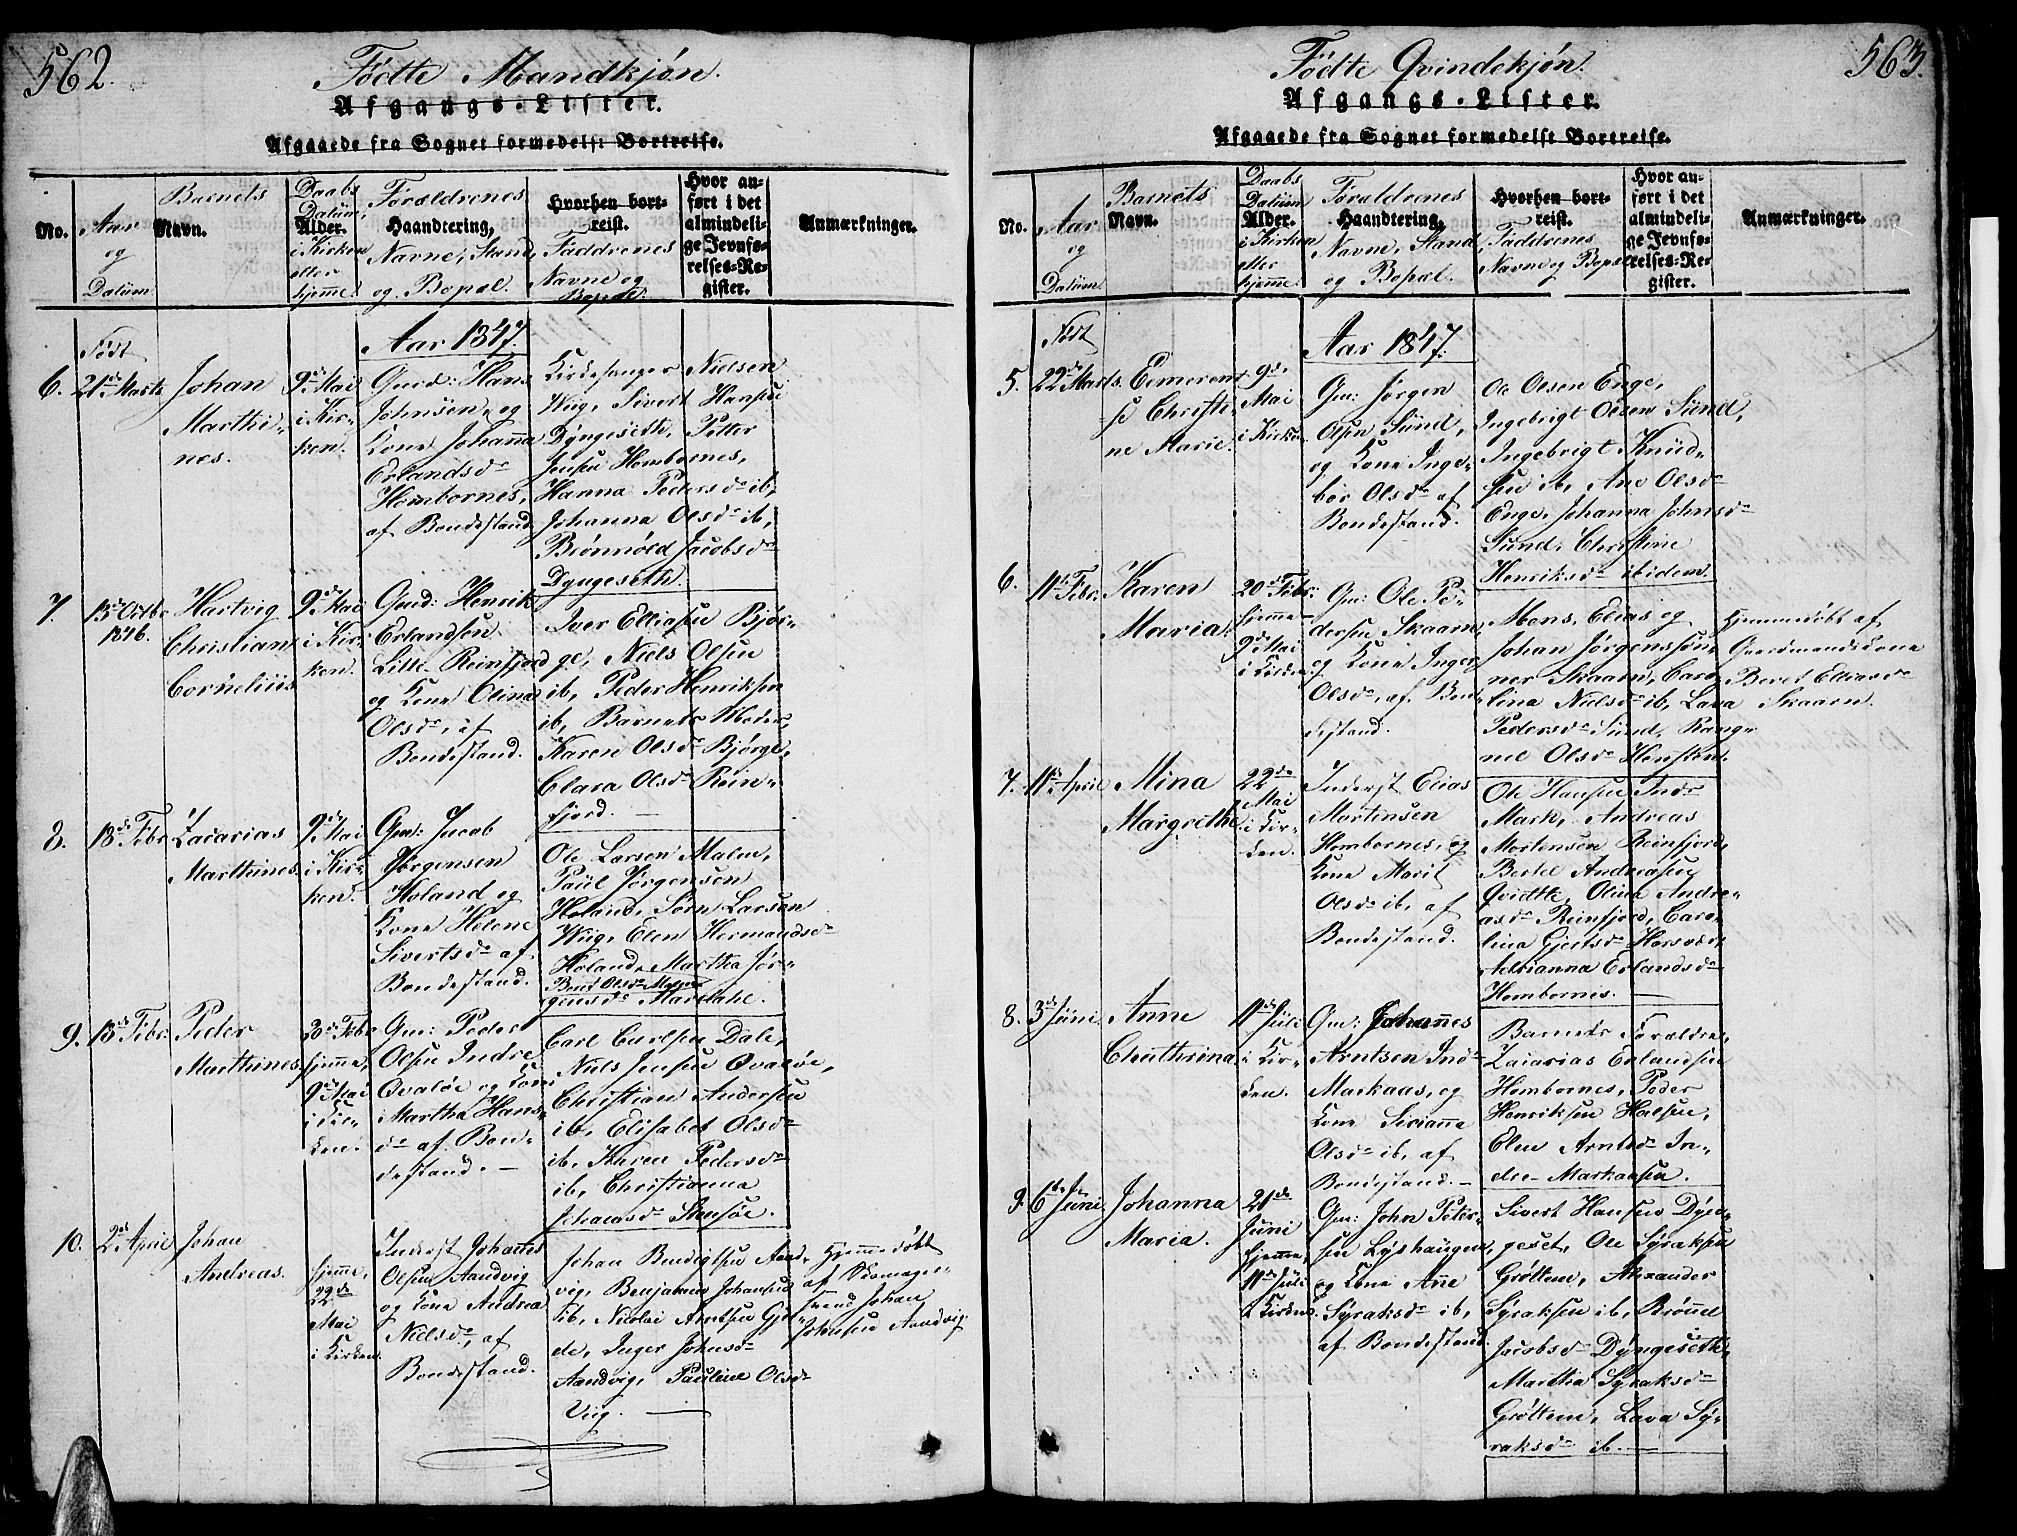 562.
Fødte Mandkjøn.
Afgangs-Lister.
Afgaaede fra Sognet formedelst Bortreise.
No.
Aar
og
Datum
Barnets
Navn.
Daabs
Datum,
Alder.
i Kirken
eller
hjemme.
Forældrenes
Haandtering,
Navne, Stand
og Bopæl.
Hvorhen bort-
reist.
Faddrenes
Navne og
Bopæl.
Hvor an-
ført i det
almindeli-
ge Jevnfø-
relses-Re-
gister.
Anmærkninger.
Aar 1847.
Født
6.
21de Marts
Johan
Marthi-
nes.
9de Mai
i Kir-
ken.
Gmd: Hans
Johnsen og
Kone Johanna
Erlandsdr
Hombornes,
af Bondestand.
Kirkesanger Nielsen
Wiig, Sivert Hansen
Dyngeseth, Petter
Jensen Hombornes,
Hanna Pedersdr ib,
Johanna Olsdr ib,
Brønnild Jacobsdr
Dyngeseth.
7.
13de Octbr
1846.
Hartvig
Christian
Cornelius
9de Mai
i Kir-
ken.
Gmd: Henrik
Erlandsen
Lille Reinfjord
og Kone Olina
Olsdr, af
Bondestand.
Iver Elliasen Bjør-
ge, Niels Olsen
ib, Peder Henriksen
ib, Barnets Moder,
Karen Olsdr Bjørge,
Clara Olsdr Rein-
fjord.
8.
18de Febr
Zacarias
Marthines
9de Mai
i Kir-
ken.
Gmd: Jacob
Jørgensen
Høland og
Kone Helene
Sivertsdr af
Bondestand.
Ole Larsen Malm,
Paul Jørgensen
Høland, Søren Larsen
Wiig, Elen Hermandsdr
Høland, Martha Jør-
gensdr
9.
13de Febr.
Peder
Marthines
hjemme,
9de Mai
i Kir-
ken.
Gm: Peder
Olsen Indre
Qvaløe og Kone
Martha Hans-
dr af Bon-
destand.
Carl Carlsen Dale,
Niels Jensen Qvaløe,
Christian Andersen
ib, Elisabet Olsdr
ib, Karen Pedersdr
ib, Christianna
Johansdr
10.
2de April
Johan
Andreas.
hjemme,
22de
Mai
i Kirken.
Inderst Johannes
Olsen Aandvig
og Kone Andrea
Nielsdr, af
Bondestand.
Johan Bendigtsen Aand-
vig, Benjamin Johansen
ib, Nicolai Arntsen
Inger Johnsdr
Aandvig, Pauline Olsdr
Viig.
Hjemmedøbt
af Skomager-
svend Johan
Johnsen Aandvig.
563.
Fødte Qvindekjøn.
Afgangs-Lister.
Afgaaede fra Sognet formedelst Bortreise.
No.
Aar
og
Datum
Barnets
Navn.
Daabs
Datum
Alder.
i Kirken
eller
hjemme.
Forældrenes
Haandtering,
Navne, Stand
og Bopæl.
Hvorhen bort-
reist.
Faddrenes
Navne og Bopæl
Hvor an-
ført i det
almindeli-
ge Jevnfø-
relses-Re-
gister.
Anmærkninger.
Aar 1847.
Født
5.
22de Marts.
Eemerent-
se Christi-
ne Marie.
9de
Mai
i Kirken
Gm: Jørgen
Olsen Sund,
og Kone Inge-
bor Olsdr af
Bondestand.
Ole Olsen Enge,
Ingebrigt Olsen Sund,
Ingebrigt Knud-
sen ib, Ane Olsdr
Enge, Johanna Johnsdr
Sund, Christine
Henriksdr ibidem.
6.
11te Febr.
Karen
Maria.
20de Febr.
hjemme
9de Mai
i Kirken
Gm: Ole Pe-
dersen Skaarn,
og Kone Inger
Olsdr, af Bon-
destand.
Mons, Elias og
Johan Jørgenssøn-
ner Skaarn, Caro-
lina Nielsdr ib, Lava
Pedersdr Sund, Rang-
nel Olsdr
Hjemmedøbt af
Gaardmandskone
Beret Elliasdr
Skaarn.
7.
11te April
Mina
Margrethe
22de
Mai
i Kir-
ken.
Inderst Elias
Mortensen
Hombornes, og
Kone Marit
Olsdr ib, af
Bondestand.
Ole Hansen Indr
Mark, Andreas
Mortensen Reinfjord,
Bertel Andreasen
Olina Andre-
asdr Reinfjord, Caro-
lina
Adrianna Erlandsdr
Hombornes.
8.
3de Juni.
Anne
Chathrina
11te Juli
i Kir-
ken.
Gm: Johannes
Arntsen Ind-
Markaas, og
Kone Sirianna
Olsdr ib, af
Bondestand.
Barnets Forældre,
Zacarias Erlandsen
Hombornes, Peder
Henriksen
Elen Arntsdr In-
dre Markaasen.
9.
6te Juni.
Johanna
Maria.
21de
Juni
hjemme,
11te Juli
i Kirken.
Gm: John Peter-
sen Lyshaugen,
og Kone Ane
Syraksdr ib,
af Bondestand.
Sivert Hansen Dyn-
geset, Ole Syraksen
Grøttem, Alexander
Syraksen ib, Brønnel
Jacobsdr Dyngeseth,
Martha Syraksdr
Grøttem, Lava Sy-
raksdr ib.